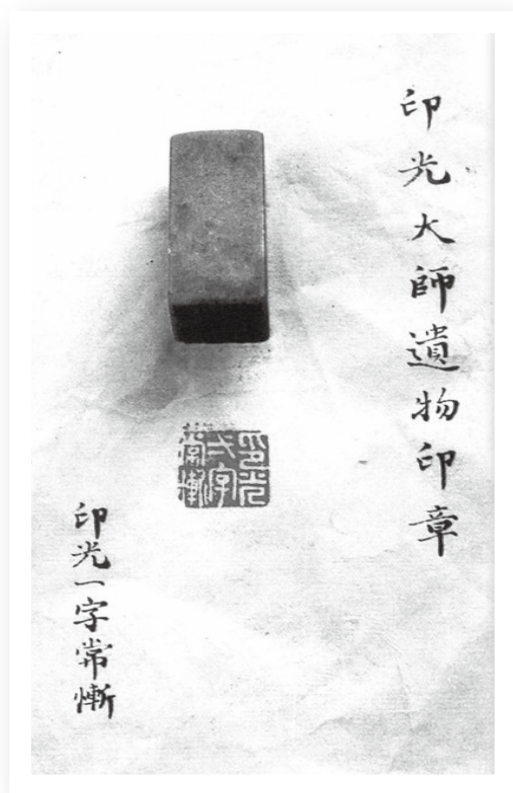 印光大師遺物印章
印光
弌字
常慚
印光一字常慚